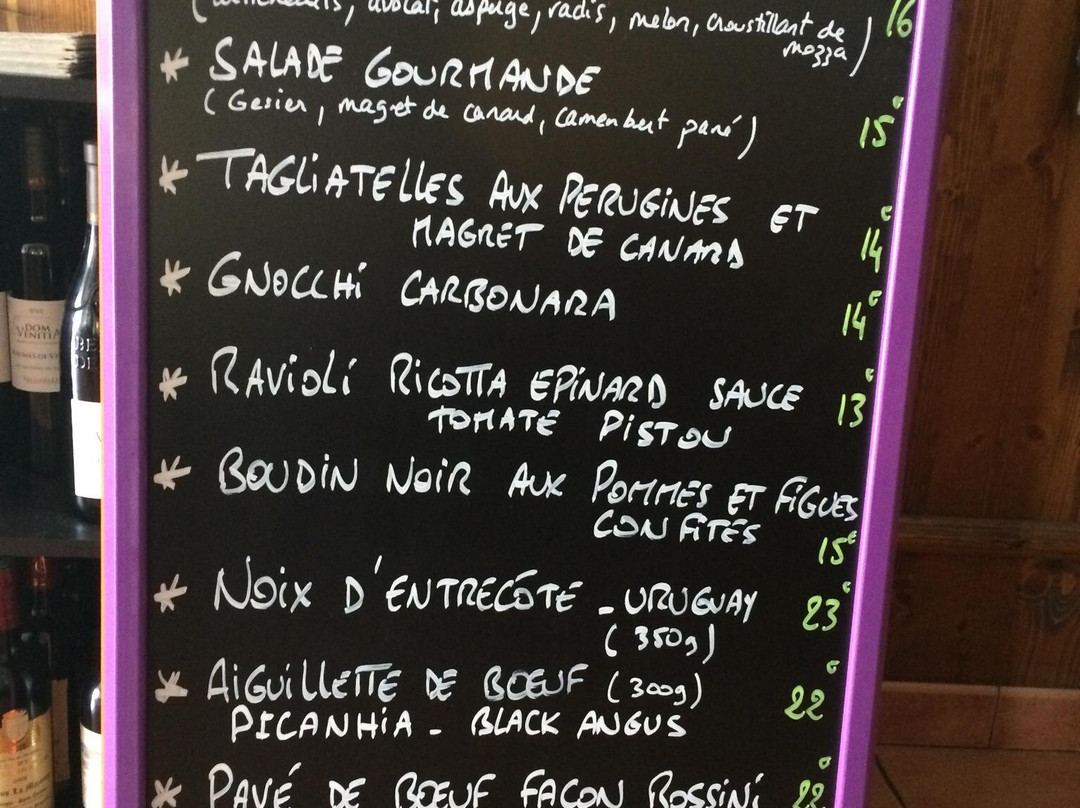 avocat, asperge, radis, melon, croustillant de
mozza) 16
* SALADE GOURMANDE
(Gesier, magret de canard, camembert pané) 15€
* TAGLIATELLES AUX PERUGINES ET
MAGRET DE CANARD 14€
* GNOCCHI CARBONARA 14€
* RAVIOLI RICOTTA EPINARD SAUCE 13€
TOMATE PISTOU
* BOUDIN NOIR AUX POMMES ET FIGUES
CONFITES 15€
* NOIX D'ENTRECÔTE - URUGUAY 23€
(350g)
* AIGUILLETTE DE BŒUF (300g) 22€
PICANHIA - BLACK ANGUS
* PAVÉ DE BŒUF FAÇON ROSSINI 22€
DOM
VENITIA